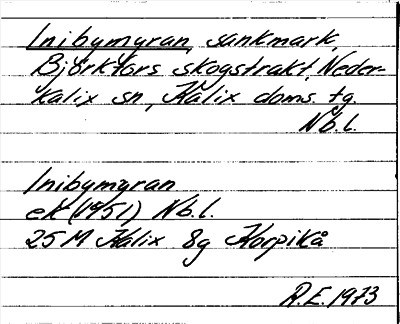 Inibymyran, sankmark,
Björkfors skogstrakt, Neder-
kalix sn, Kalix doms. tg.
Nb.l.
Inibymyran
ek (1951) Nb.l.
25M Kalix 8g Korpikå
R.E. 1973